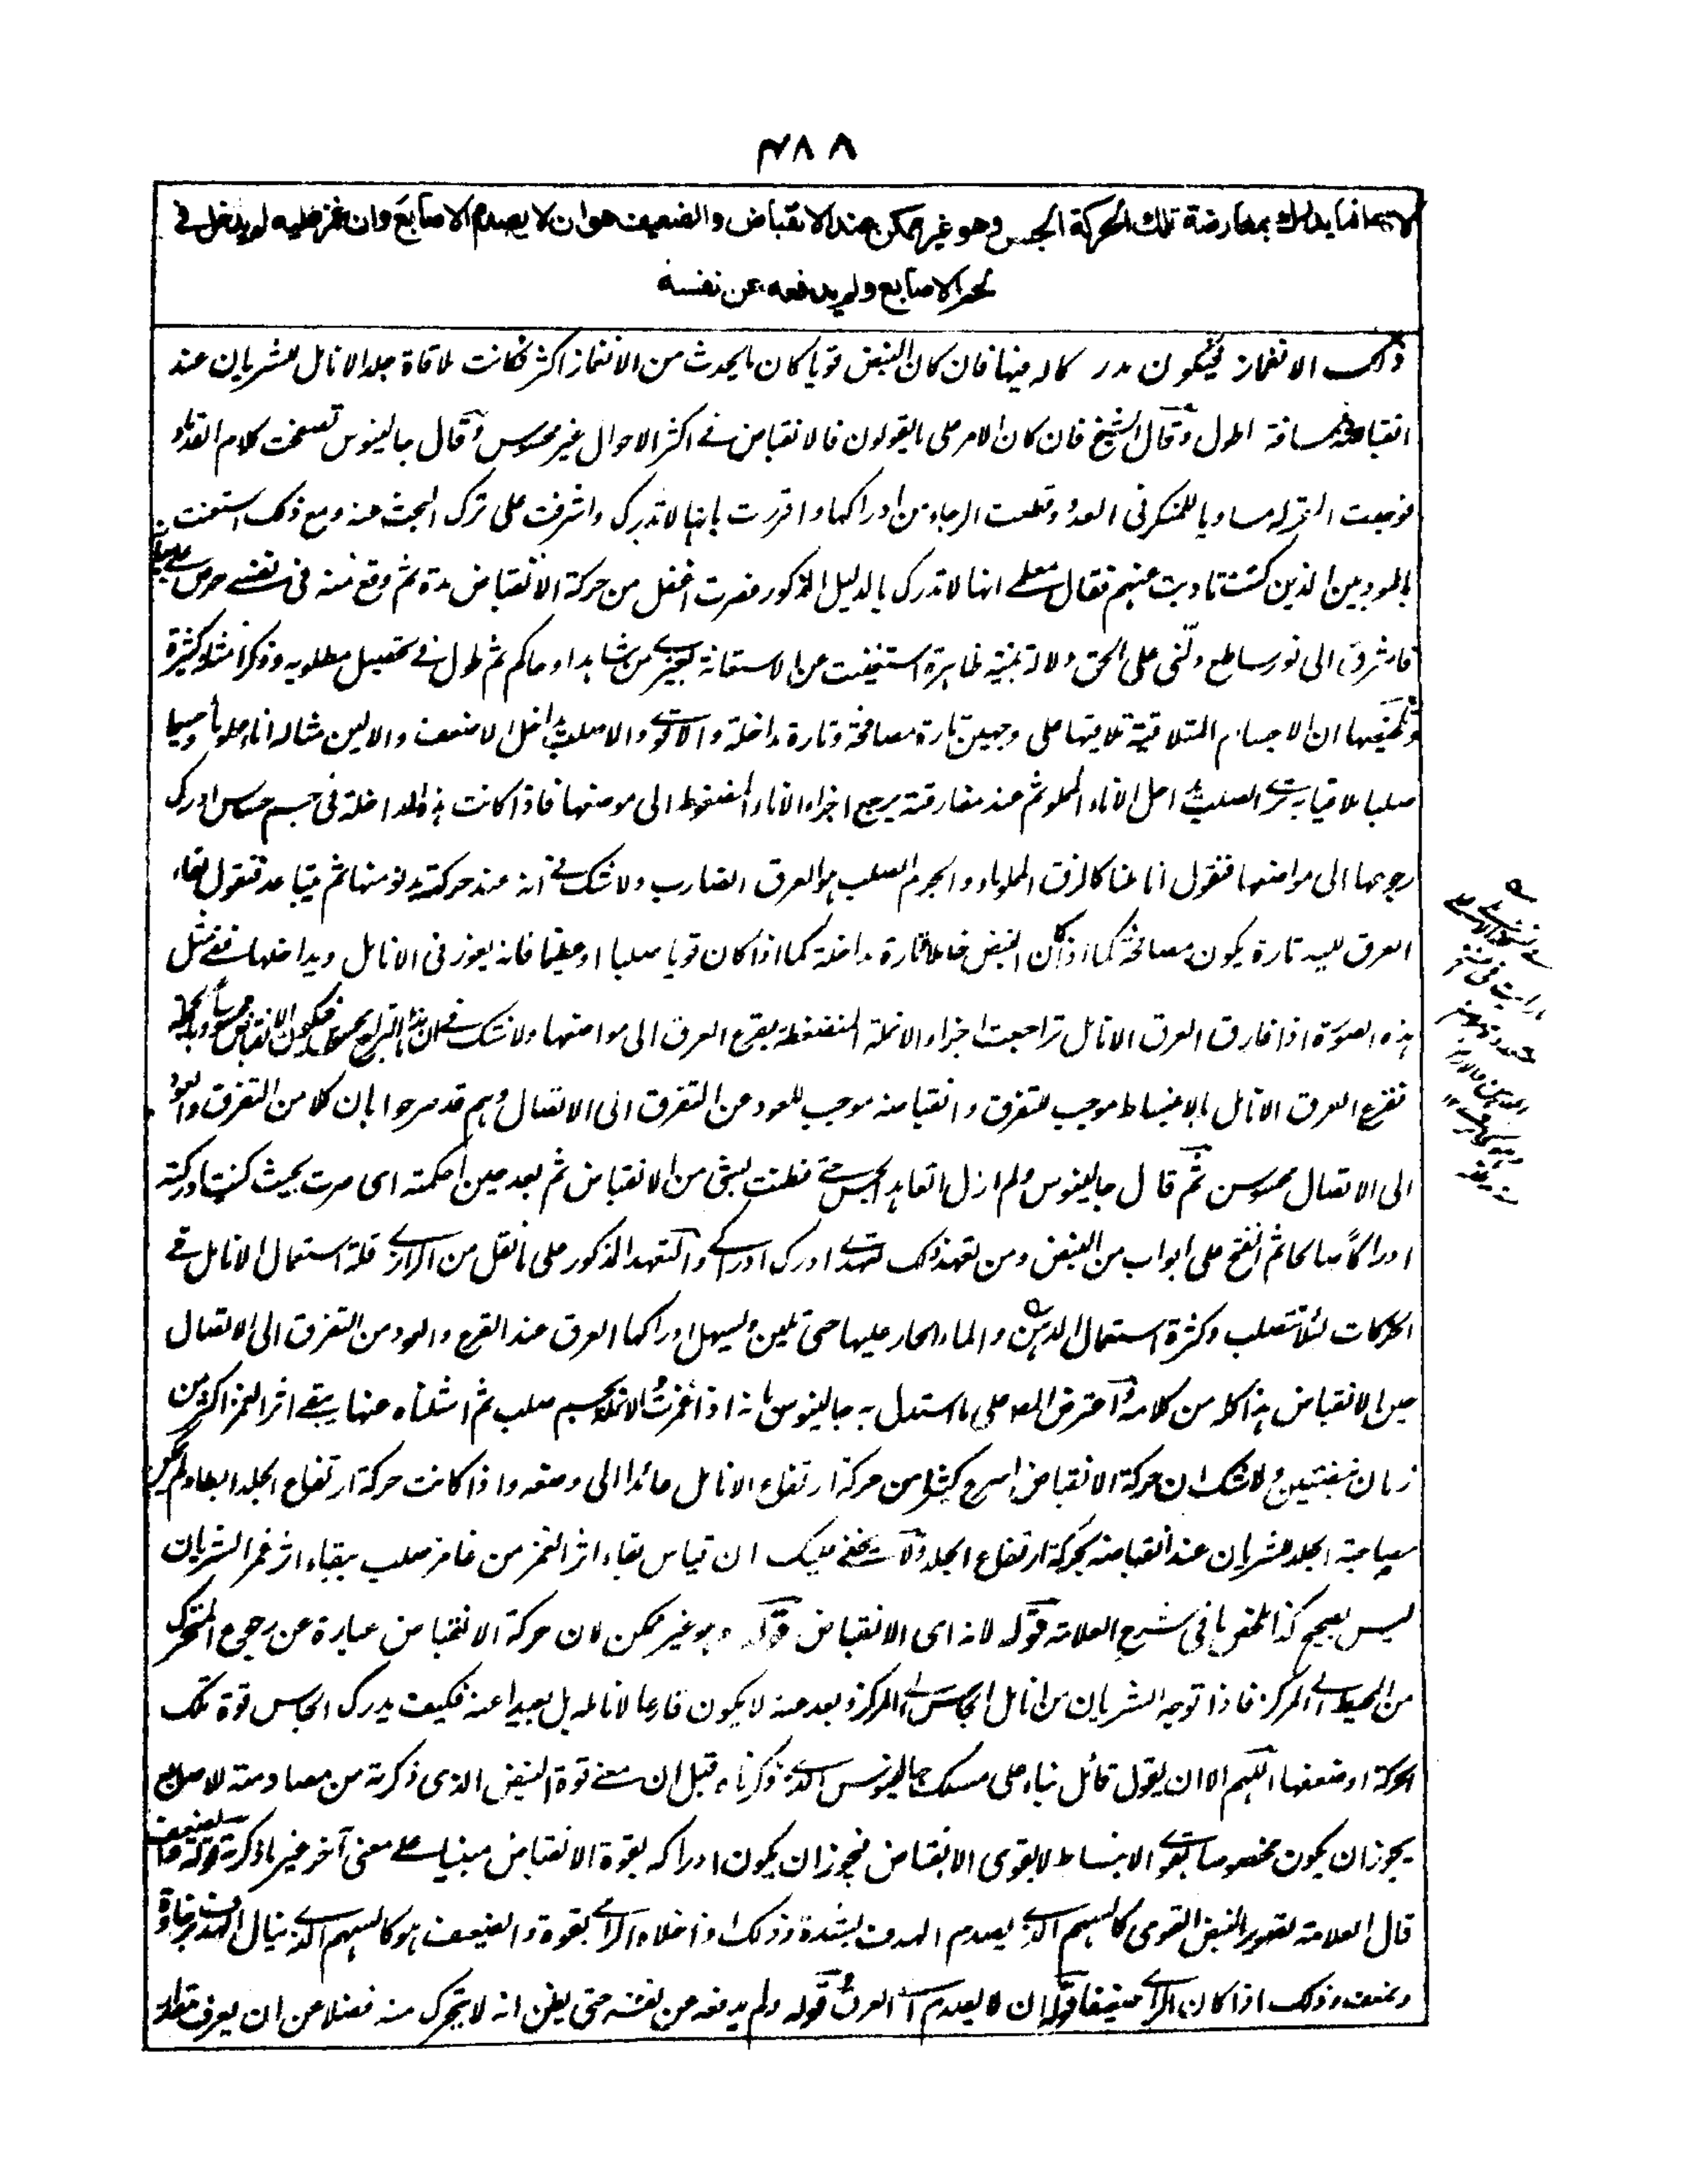 ۴۸۸
لانها انما يدرك بمعارضة تلك الحركة الجس وهو غير ممكن عند الانقباض والضعيف هو ان لا يصدم الاصابع وان غمز عليه لم يدخل في
لحم الاصابع ولم يدفعه عن نفسه
ذلك الانغماز فيكون مدركا له فيها فان كان النبض قويا كان ما يحدث من الانغماز اكثر فكانت ملاقاة جلد الانامل للشريان عند
انقباضه مسافة اطول وقال الشيخ فان كان الامر على ما يقولون فالانقباض في اكثر الاحوال غير محسوس وقال جالينوس تصفحت كلام القدماء
فوجدت المقر له مساويا للمنكر في العدد وقطعت الرجاء من ادراكها واقررت بانها لا تدرك واشرفت على ترك البحث عنه ومع ذلك استعنت
بالمودبين الذين كنت تادبت عنهم فقال معلمي انها لا تدرك بالدليل المذكور فصرت اغفل من حركة الانقباض مدة ثم وقع منه في نفسي حرص
فاشرق الى نور ساطع دلني على الحق دلالة بينة ظاهرة استغنيت عن الاستعانة بغيري من شاهد او حاكم ثم طول في تحصيل مطلوبه وذكر امثلة كثيرة
وتلخيصها ان الاجسام المتلاقية تلاقيها على وجهين تارة مصافحة وتارة مداخلة والاقوى والاصلب يداخل الاضعف والالين مثاله اناء مملو ماء وجسما
صلبا ملاقيا به ترى الصلب يداخل الاناء المملو ثم عند مفارقته يرجع اجزاء الاناء المضغوط الى موضعها فاذا كانت هذه المداخلة في جسم حساس ادرك
رجوعها الى مواضعها فنقول اناملنا كالزق المملو ماء والجرم الصلب هو العرق الضارب ولا شك في انه عند حركته يدنو منها ثم يتباعد فنقول لقاء
العرق لليد تارة يكون مصافحة كما اذا كان النبض خاملا وتارة مداخلة كما اذا كان قويا صلبا او عظيما فانه يغوز في الانامل ويداخلها ففي مثل
هذه الصورة اذا فارق العرق الانامل تراجعت اجزاء الانملة المنضغطة بقرع العرق الى مواضعها ولا شك في ان هذا التراجع محسوس فيكون الانقباض محسوسا وبالجملة
فقرع العرق الانامل بالانبساط موجب للتفرق وانقباضه موجب للعود من التفرق الى الاتصال وهم قد صرحوا بان كلا من التفرق والعود
الى الاتصال محسوس ثم قال جالينوس ولم ازل اتعاهد الجس حتى فطنت بشئ من الانقباض ثم بعد حين احكمته اى صرت بحيث كنت ادركته
ادراكا صالحا ثم انفتح على ابواب من النبض ومن تعهد ذلك تعهدي ادرك ادراكي والتعهد المذكور على ما نقل من الرازي قلة استعمال الانامل في
الحركات لئلا تتصلب وكثرة استعمال الدهن والماء الحار عليها حتى تلين وليسهل ادراكها العرق عند القرع والعود من التفرق الى الاتصال
حين الانقباض هذا كله من كلامه واعترض المص على ما استدل به جالينوس بانه اذا غمزت الانملة بجسم صلب ثم اشلناه عنها يبقى اثر الغمز اكثر من
زمان نبضتين ولا شك ان حركة الانقباض اسرع كثيرا من حركة ارتفاع الانامل عائدا الى وضعه واذا كانت حركة ارتفاع الجلد ابطا ولم يكن
مصاحبة الجلد للشريان عند انقباضه بحركة ارتفاع الجلد ولا يخفى عليك ان قياس بقاء اثر الغمز من غامز صلب ببقاء اثر غمز الشريان
ليس بصحيح كذا تلخص ما في شرح العلامة قوله لانه اى الانقباض قوله وهو غير ممكن لان حركة الانقباض عبارة عن رجوع المتحرك
من المحيط الى المركز فاذا توجه الشريان من انامل الجاس الى المركز وبعد عنه لا يكون قارعا لانامله بل بعيدا عنه فكيف يدرك الجاس قوة تلك
الحركة او ضعفها اللهم الا ان يقول قائل بناء على مسلك جالينوس الذي ذكرناه قبل ان معنى قوة النبض الذى ذكرته من مصادمته للاصابع
يجوز ان يكون مخصوصا بقوى الانبساط لا بقوى الانقباض فيجوز ان يكون ادراكه بقوة الانقباض مبنيا على معنى آخر غير ما ذكرته قوله والضعيف
قال العلامة تصوير النبض القوى كالسهم الذي يصدم الهدف بشدة وذلك اذا خلاه الرامي بقوة والضعيف هو كالسهم الذي ينال الهدف برخاوة
وضعف وذلك اذا كان الرامي ضعيفا قوله ان لا يصدم اى العرق قوله ولم يدفعه عن نفسه حتى يظن انه لا يتحرك منه فضلا عن ان يعرف مقدار